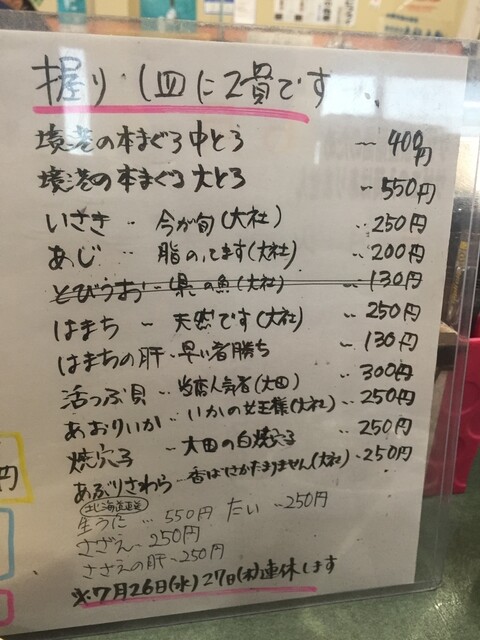 握り 1皿に2貫です
境港の本まぐろ中とろ ‥ 400円
境港の本まぐろ大とろ ‥ 550円
いさき ‥ 今が旬(大社) ‥ 250円
あじ ‥ 脂のってます(大社) ‥ 200円
とびうお ‥ 県の魚(大社) ‥ 130円
はまち ‥ 天然です(大社) ‥ 250円
はまちの肝 ‥ 早い者勝ち ‥ 130円
活つぶ貝 ‥ 当店人気者(大田) ‥ 300円
あおりいか ‥ いかの女王様(大社) ‥ 250円
焼穴子 ‥ 大田の白焼穴子 ‥ 250円
あぶりさわら ‥ 香ばしさがたまりません(大社) ‥ 250円
北海道産
生うに ‥ 550円 たい ‥ 250円
さざえ ‥ 250円
さざえの肝 ‥ 250円
※7月26日(水)27日(木)連休します
円